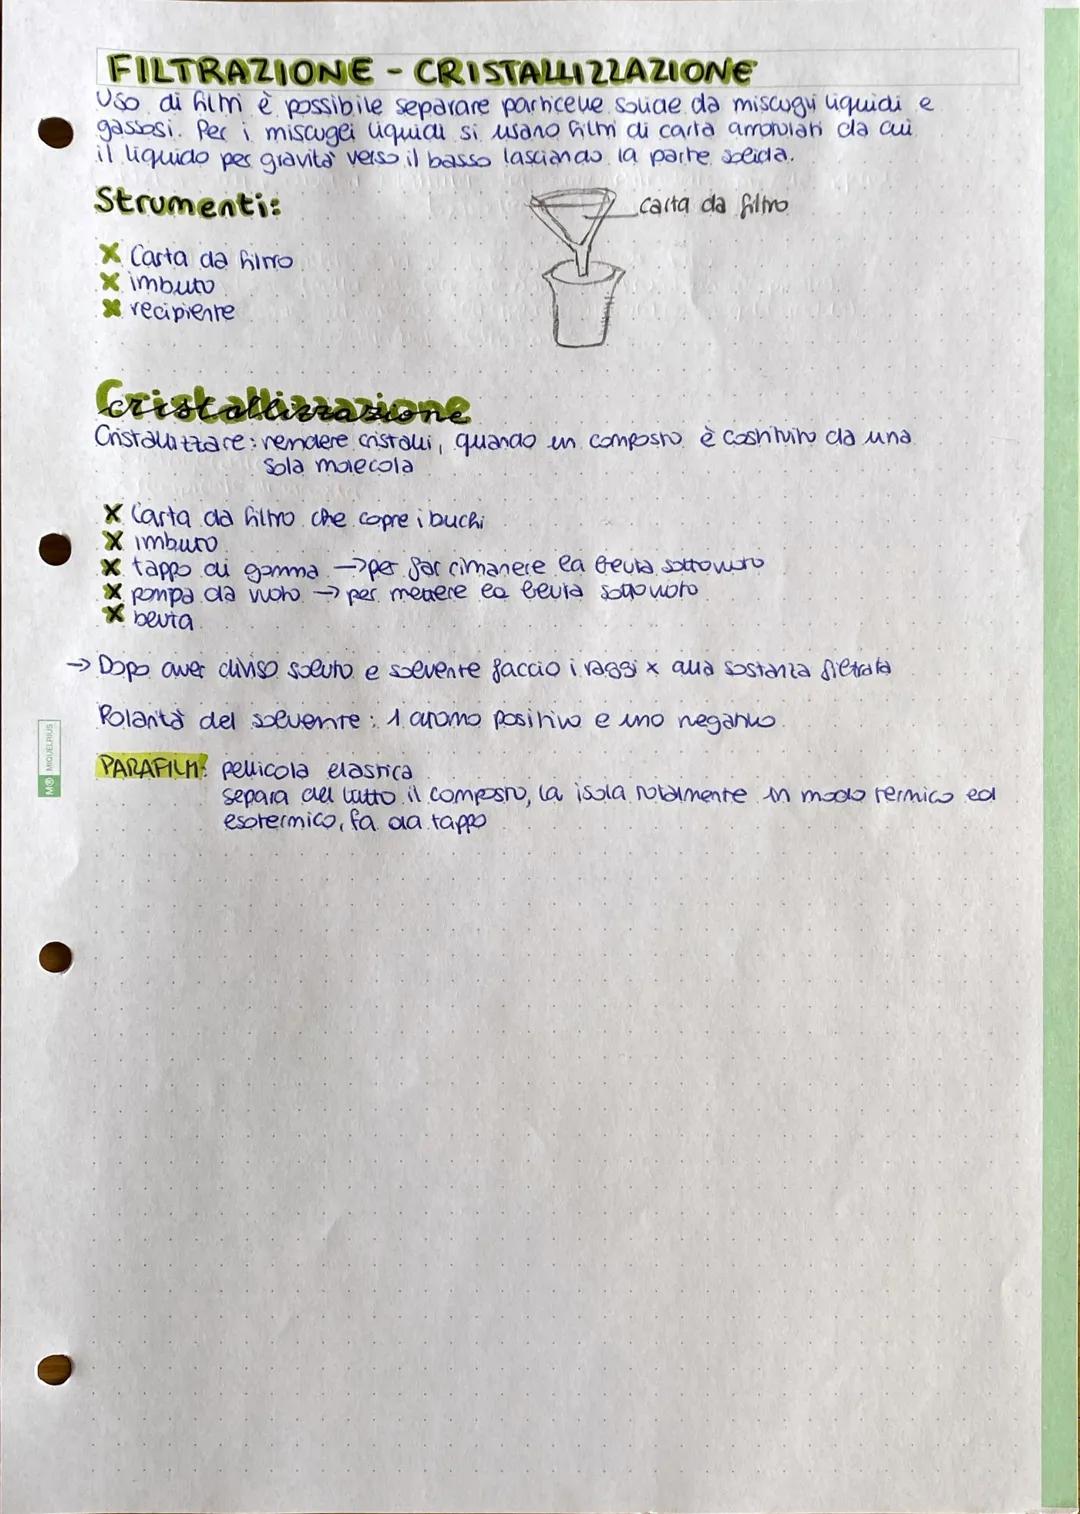 FILTRAZIONE - CRISTALLIZZAZIONE
Uso di filtri è possibile separare particelle solide da miscugli liquidi e
gassosi. Per i miscugli liquidi si usano filtri di carta arrotolati da cui
il liquido per gravità verso il basso lasciando la parte solida.
Strumenti:
carta da filtro
X Carta da filtro
X imbuto
X recipiente
Cristallizzazione
Cristallizzare: rendere cristalli, quando un composto è costituito da una
sola molecola
X Carta da filtro che copre i buchi
X imbuto
X tappo di gomma → per far rimanere la beuta sottovuoto
X pompa da vuoto → per mettere la beuta sottovuoto
X beuta
→ Dopo aver diviso soluto e solvente faccio i raggi x alla sostanza filtrata
Polarità del solvente: 1 atomo positivo e uno negativo
PARAFILM: pellicola elastica
separa del tutto il composto, la isola totalmente in modo termico ed
esotermico, fa da tappo
M® MIQUELRIUS